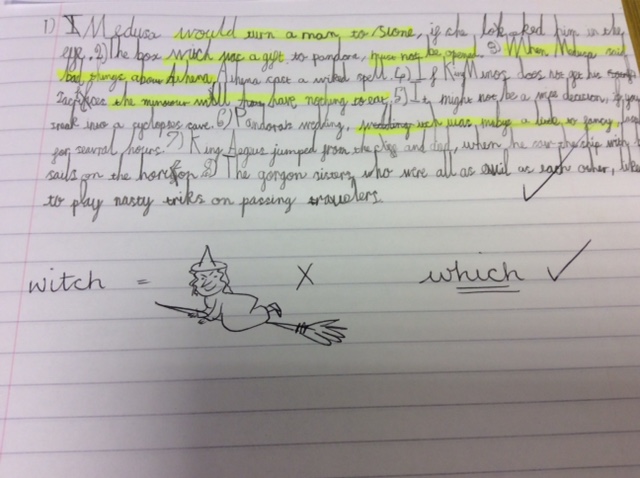 1) I Medusa would turn a man to stone, if she looked him in the
eye. 2) The box wich was a gift to pandora, must not be opened. 3) When Medusa said
bad things about Athena, Athena cast a wiked spell. 4) If King Minos does not get his
sacrifices the minotour will have nothing to eat. 5) It might not be a wise decision, if you
sneak into a cyclopses cave. 6) Pandora's wedding, wich was maby a little to fancy,
for sevral hours. 7) King Aegus jumped from the cliff and died, when he saw the ship with
sails on the horizon 8) The gorgon sisters, who were all as evil as each other, like
to play nasty triks on passing travelers.
witch = X which ✓